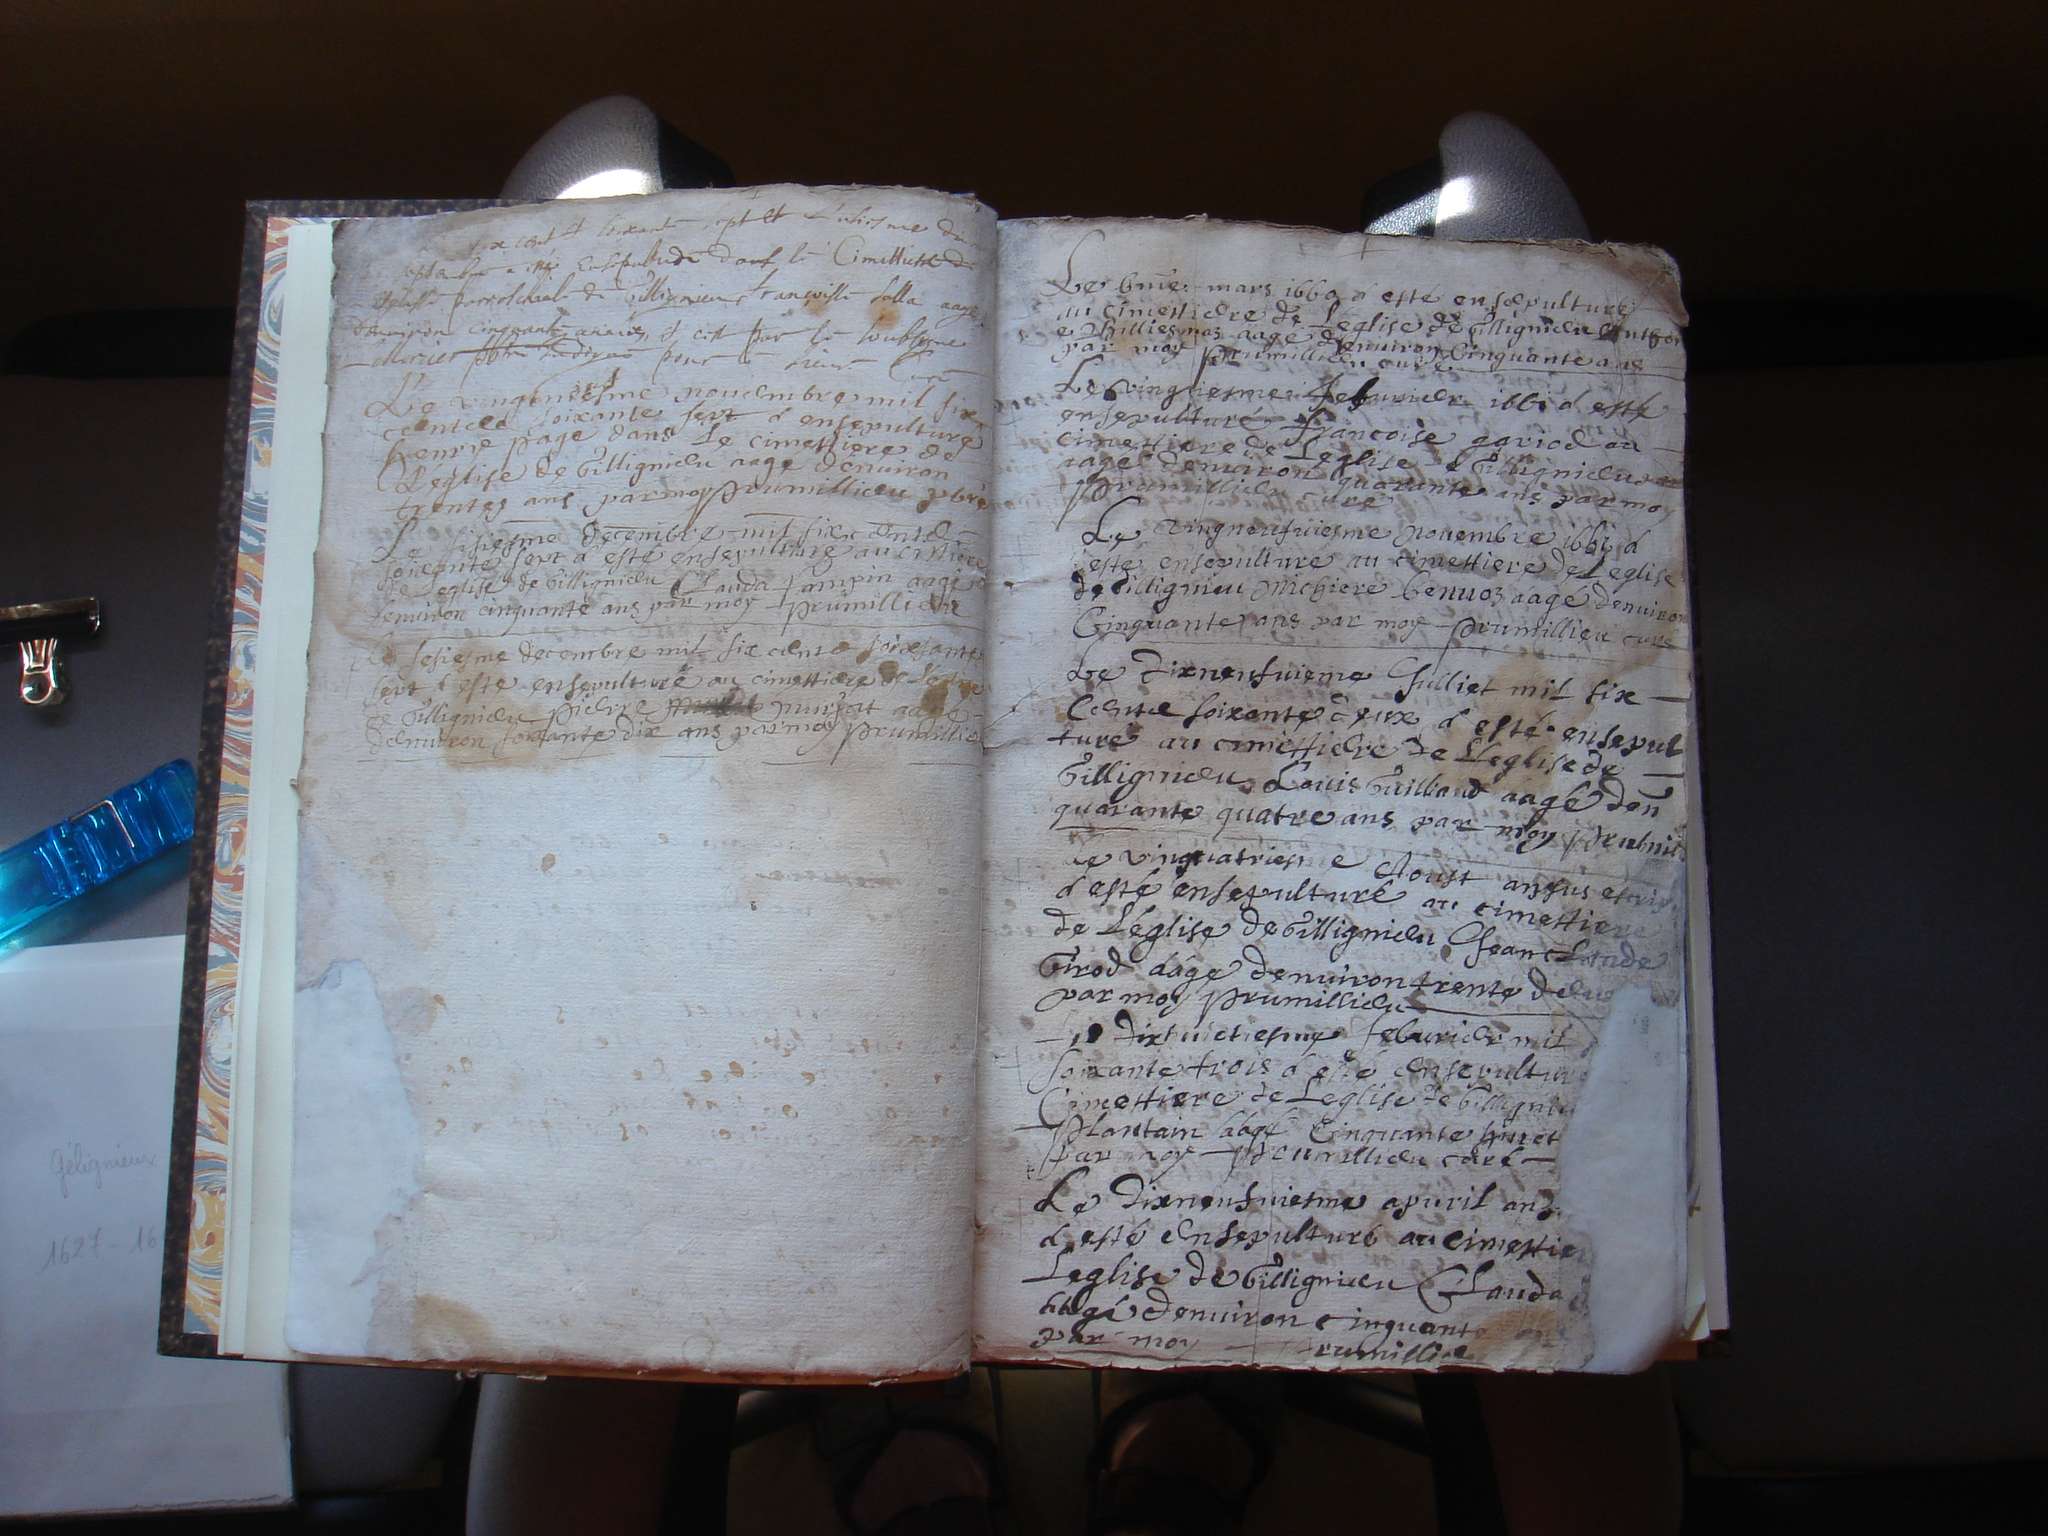 six cent et soixante sept et
septembre a esté ensepulturé dans le Cimettiere de
esglise parrochiale de Gillignieu françoise aagée
d'environ cinquante années, et c'est par le soubsigné
pour le sieur Curé
Le vingtiesme novembre mil six
cents soixante sept a ensepulturé
henrÿ page dans Le cimettiere de
L'église de Gillignieu aage denuiron
trentes ans par moy Prumillieu pbre
Le sisiesme decembre mil six cents
soixante sept a esté ensepulturé au
de Leglise de Gillignieu Clauda aagé
denuiron cinquante ans par moy Prumillieu
Le sesiesme decembre mil six cents soixante
sept a esté ensepulturé au cimettiere de
de Gillignieu pierre aagé
denuiron soixante dix ans par moy Prumillieu
Le mars 1660 a esté ensepulturé
au cimettiere de Leglise de Gillignieu
aagé denuiron Cinquante ans
par moy Prumillieu curé
Le vingtiesme feburier 1661 a esté
ensepulturé francoise au
cimettiere de Leglise de Gillignieu
aagé denuiron quarante ans par moy
Prumillieu curé
Le vingneufuiesme novembre 1661 a
esté ensepulturé au cimettiere de Leglise
de Gillignieu aagé denuiron
Cinquante ans par moy Prumillieu curé
Le dixneufuieme Julliet mil six
Cents soixante deux a esté ensepul
turé au cimettiere de L'eglise de
Gillignieu Louis Guilliand aagé den
quarante quatre ans par moy
Le vinquatriesme Aoust an sus
a esté ensepulturé au cimettiere
de L'eglise de Gillignieu Jean Claude
Girod aage denuiron trente deux
par moy Prumillieu
feburier mil
soixante trois a esté ensepulturé
Cimettiere de Leglise de Gillignieu
Plantain aagé Cinquante huict
par moy Prumillieu curé
Le dixneufuiesme apuril an
a esté ensepulturé au cimettiere
Leglise de Gillignieu Clauda
aagé denuiron cinquante
par moy Prumillieu
Gélignieux
1627 - 16